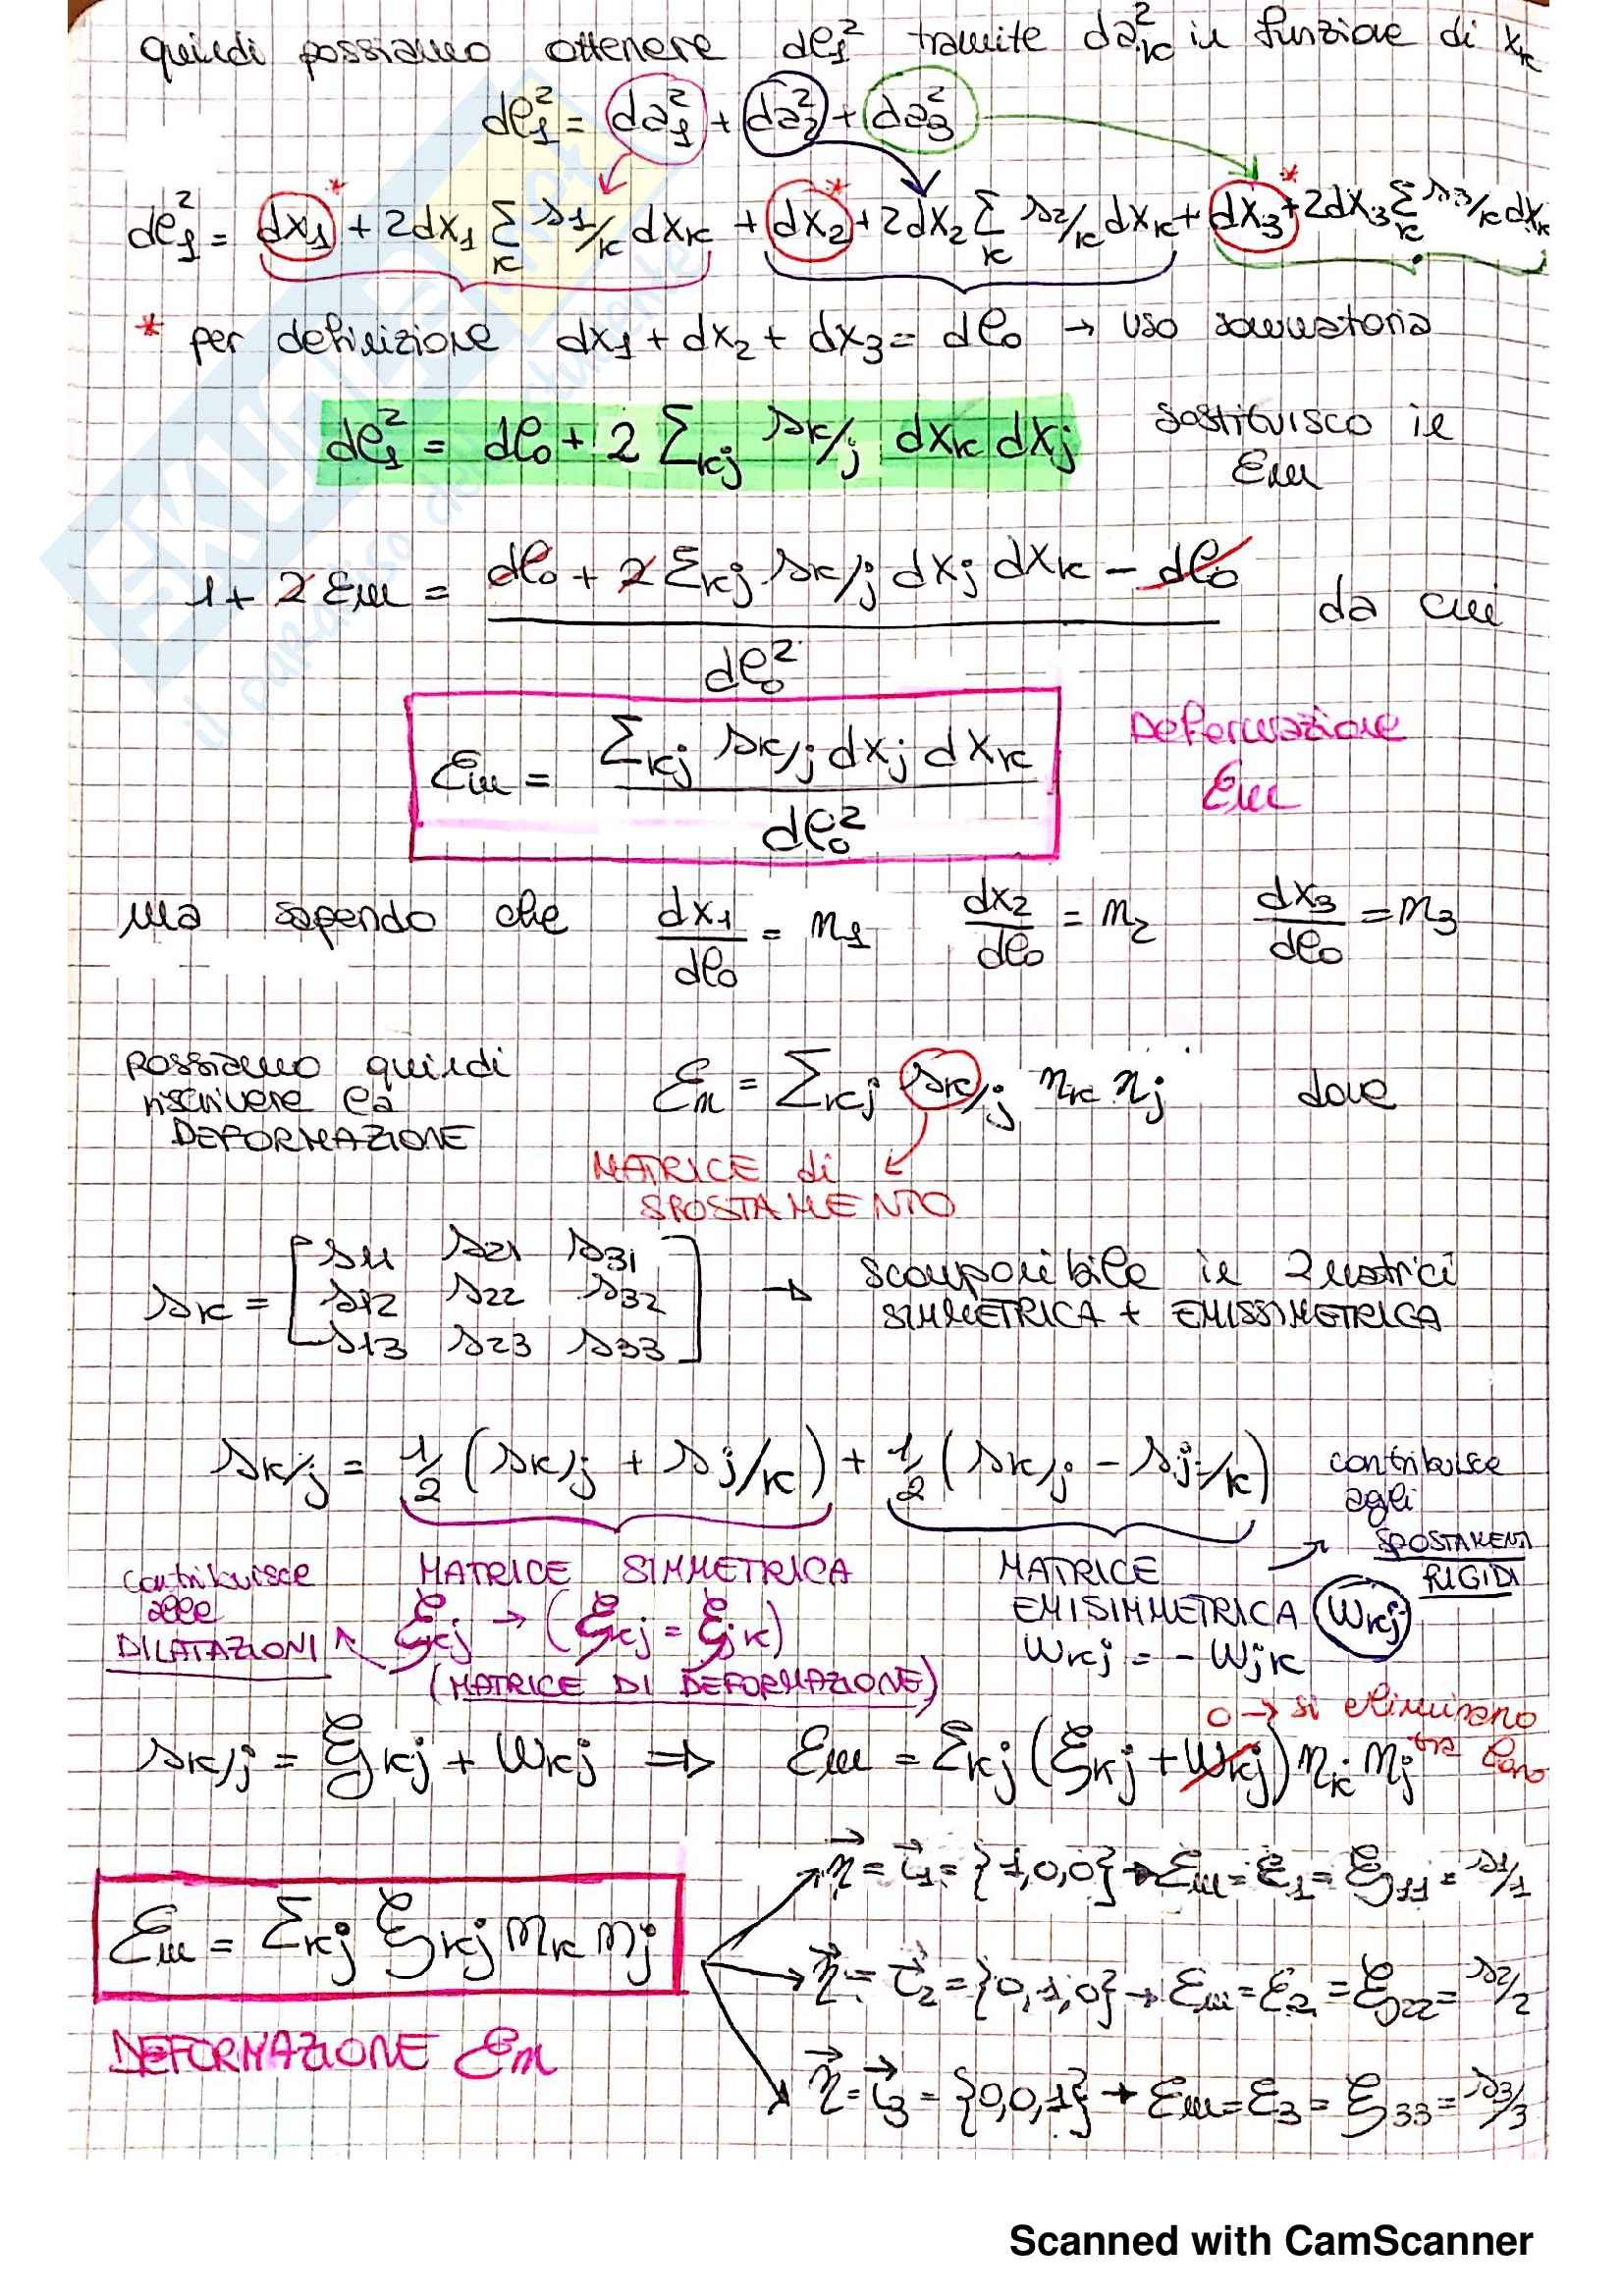 quindi possiamo ottenere dℓ₁² tramite da²ₖ in funzione di xₖ
dℓ₁² = da₁² + da₂² + da₃²
dℓ₁² = dx₁* + 2dx₁ Σₖ s₁/ₖ dxₖ + dx₂* + 2dx₂ Σₖ s₂/ₖ dxₖ + dx₃* + 2dx₃ Σₖ s₃/ₖ dxₖ
* per definizione dx₁ + dx₂ + dx₃ = dℓ₀ → uso sommatoria
dℓ₁² = dℓ₀ + 2 Σₖⱼ sₖ/ⱼ dxₖ dxⱼ sostituisco in
εₘ
1 + 2 εₘ = dℓ₀ + 2 Σₖⱼ sₖ/ⱼ dxⱼ dxₖ − dℓ₀ da cui
dℓ₀²
εₘ = Σₖⱼ sₖ/ⱼ dxⱼ dxₖ Deformazione
dℓ₀² εₘ
ma sapendo che dx₁/dℓ₀ = n₁ dx₂/dℓ₀ = n₂ dx₃/dℓ₀ = n₃
possiamo quindi
riscrivere la
DEFORMAZIONE
εₙ = Σₖⱼ sₖ/ⱼ nₖ nⱼ dove
MATRICE di
SPOSTAMENTO
sₖ = [ s₁₁ s₂₁ s₃₁
s₁₂ s₂₂ s₃₂
s₁₃ s₂₃ s₃₃ ]
→ scomponibile in 2 matrici
SIMMETRICA + EMISSIMETRICA
sₖ/ⱼ = ½ (sₖ/ⱼ + sⱼ/ₖ) + ½ (sₖ/ⱼ − sⱼ/ₖ)
contribuisce
agli
SPOSTAMENTI
RIGIDI
contribuisce
alle
DILATAZIONI
MATRICE SIMMETRICA
ξₖⱼ → (ξₖⱼ = ξⱼₖ)
(MATRICE DI DEFORMAZIONE)
MATRICE
EMISIMMETRICA wₖⱼ
wₖⱼ = − wⱼₖ
0 → si eliminano
tra loro
sₖ/ⱼ = ξₖⱼ + wₖⱼ ⇒ εₘ = Σₖⱼ (ξₖⱼ + wₖⱼ) nₖ nⱼ
εₘ = Σₖⱼ ξₖⱼ nₖ nⱼ
DEFORMAZIONE εₙ
n⃗ = i⃗₁ = {1,0,0} → εₘ = ε₁ = ξ₁₁ = s₁/₁
n⃗ = i⃗₂ = {0,1,0} → εₘ = ε₂ = ξ₂₂ = s₂/₂
n⃗ = i⃗₃ = {0,0,1} → εₘ = ε₃ = ξ₃₃ = s₃/₃
Scanned with CamScanner